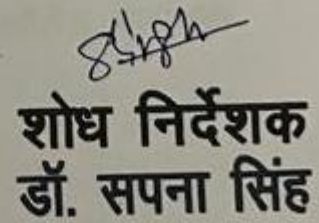 शोध निर्देशक
डॉ. सपना सिंह